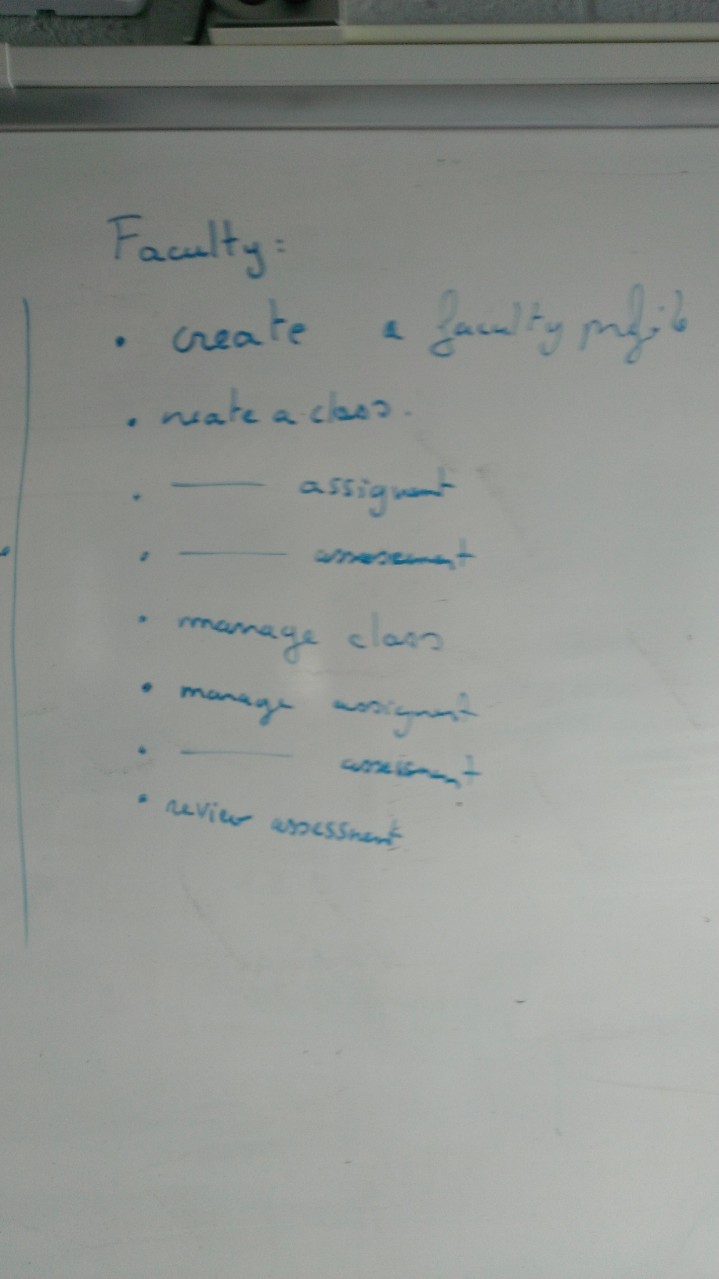 Faculty:
• create a faculty profile
• create a class.
• —— assignment
• —— assessement
• manage class
• manage assignment
• —— assessment
• review assessment